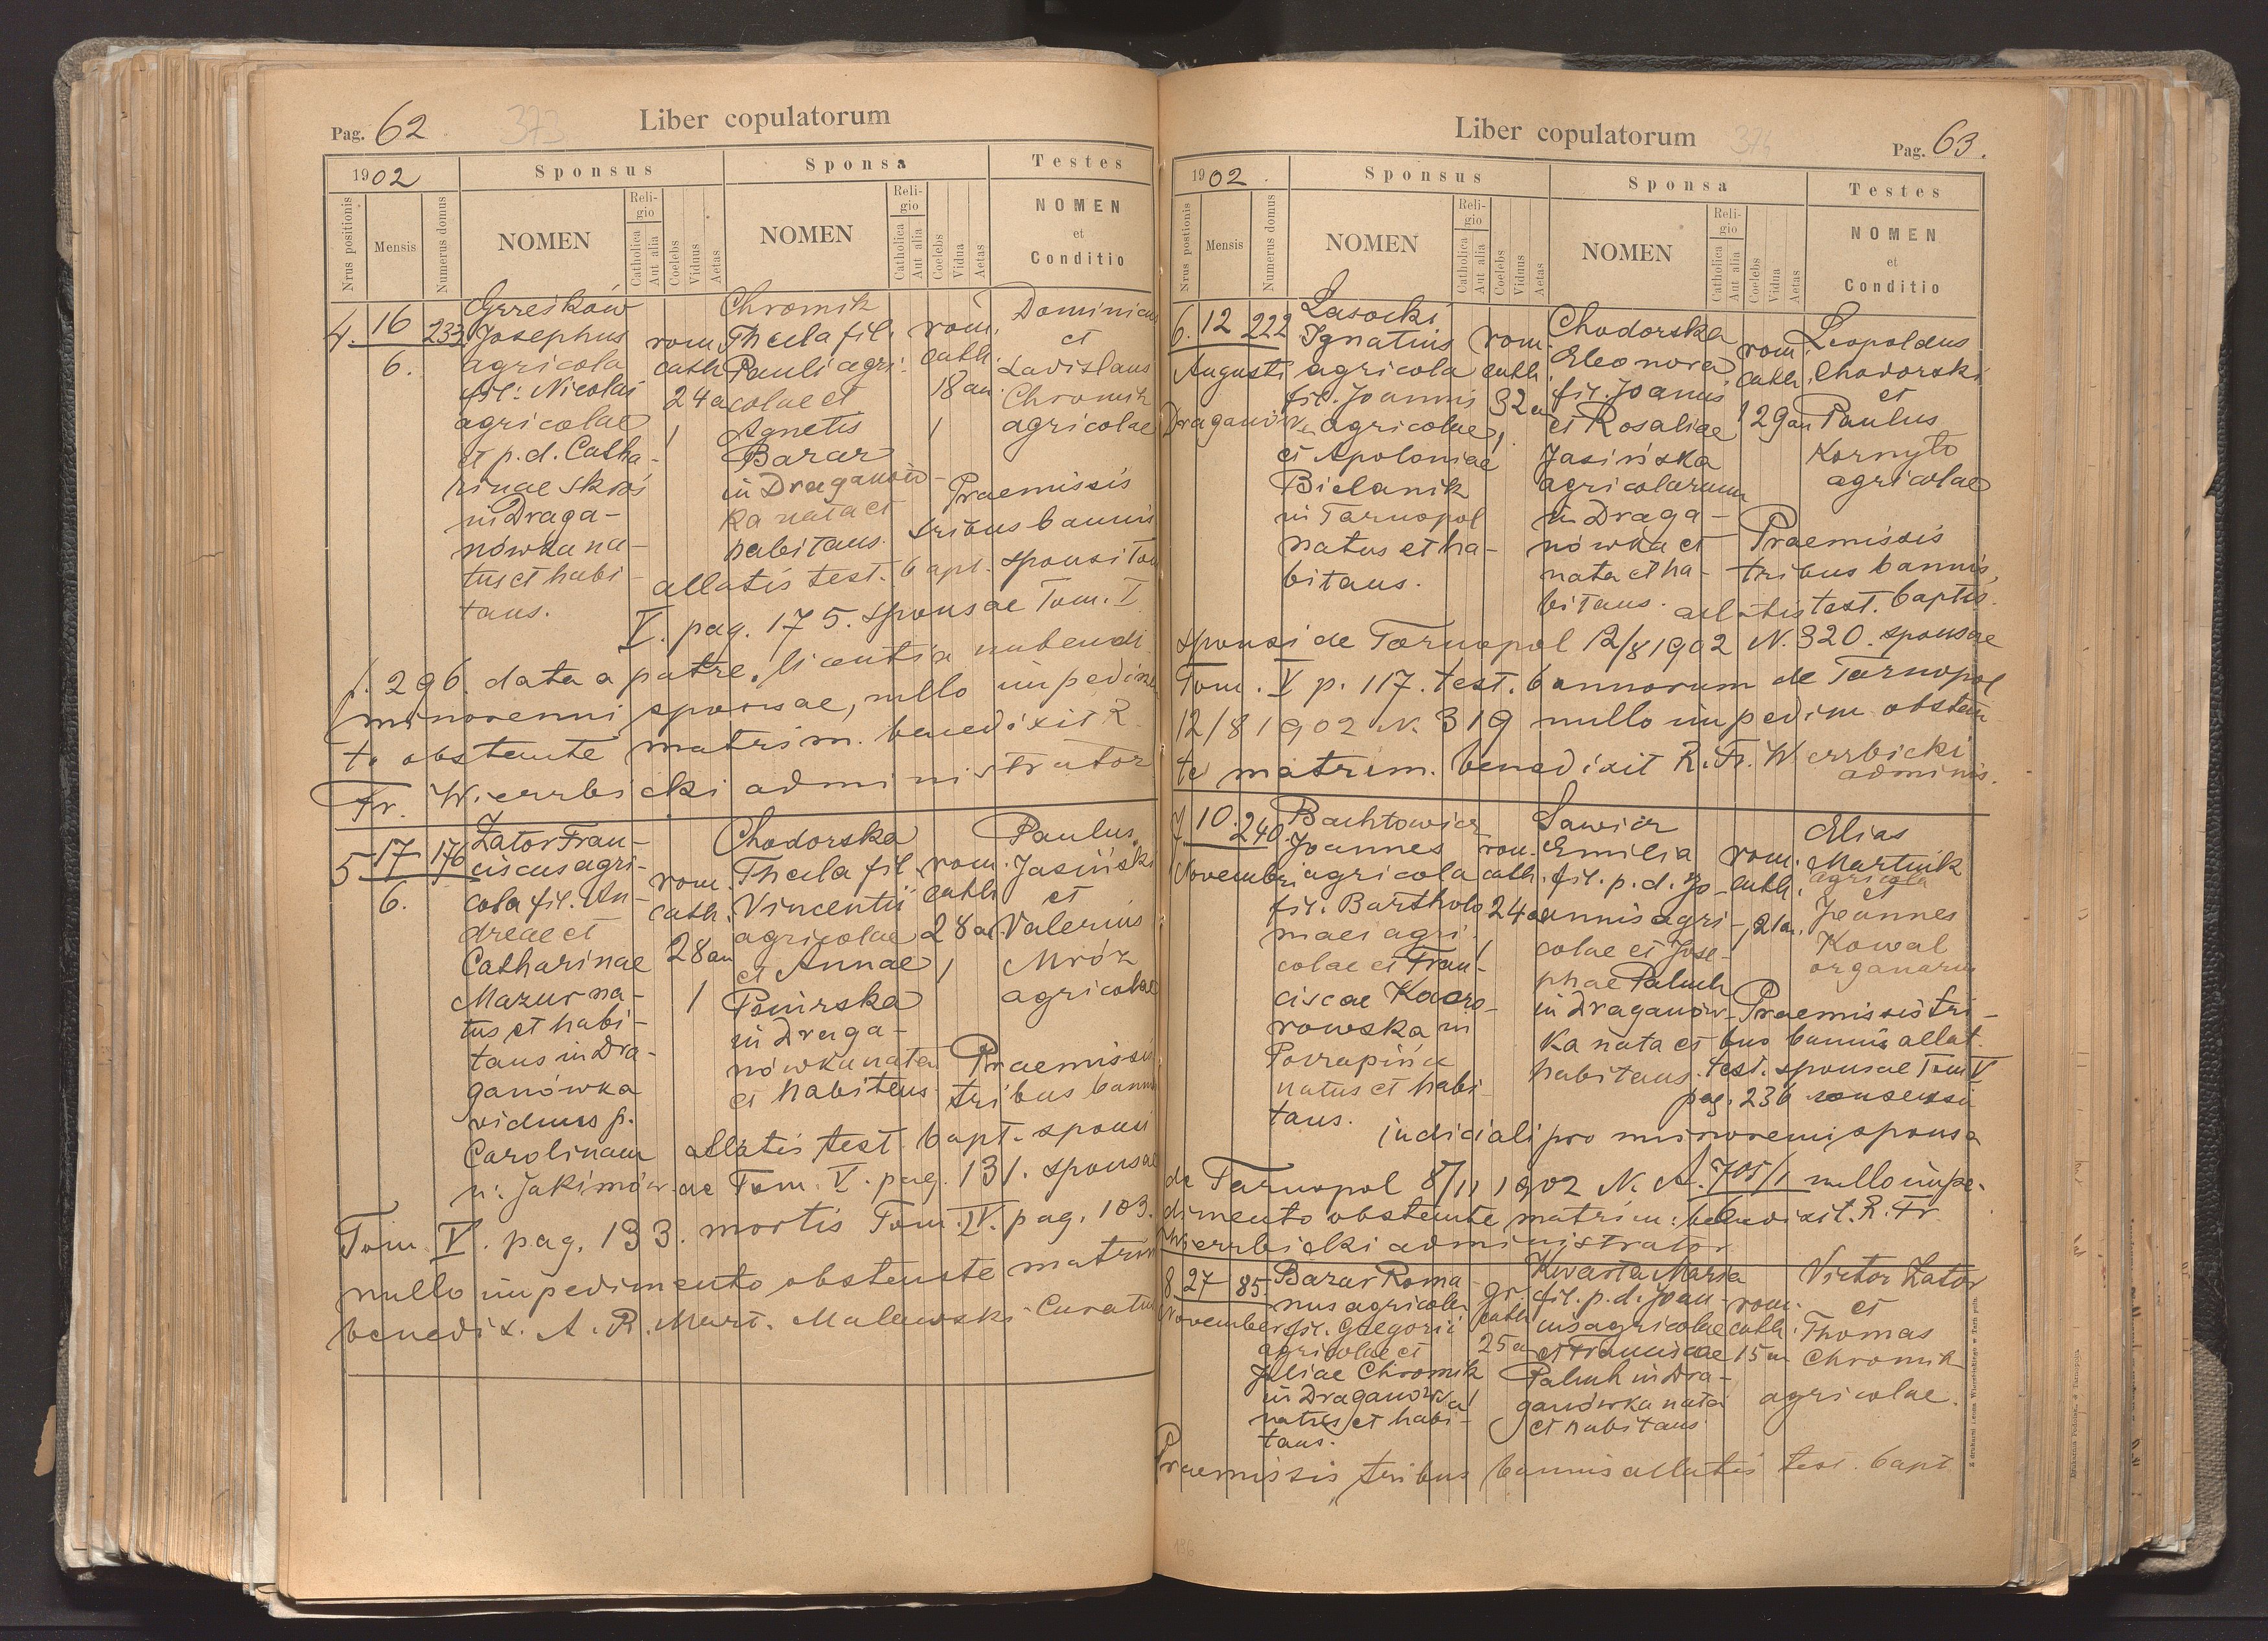 Pag. 62
Liber copulatorum
1902
Sponsus
Sponsa
Testes
Nrus positionis
Mensis
Numerus domus
NOMEN
Religio
Catholica
Aut alia
Coelebs
Viduus
Aetas
NOMEN
Religio
Catholica
Aut alia
Coelebs
Vidua
Aetas
NOMEN
et
Conditio
4. 16 233
6.
Josephus
agricola
fil. Nicolai
agricolae
et p. d. Catha-
rinae Skroś
in Draga-
nówka na-
tus et habi-
tans.
rom.
cath.
24 a
1
Chromik
Thecla fil.
Pauli agri-
colae et
Agnetis
Barar
in Draganów-
ka nata et
habitans.
rom.
cath.
18 an.
1
Dominicus
et
Ladislaus
Chromik
agricolae
Praemissis
tribus bannis
allatis test. bapt. sponsi Tom
V. pag. 175. sponsae Tom. V
p. 296. data a patre licentia nubendi
minorenni sponsae, nullo impedimen
to obstante matrim. benedixit R.
Fr. Wierzbicki administrator
5 17 176
6.
Zator Fran-
ciscus agri-
cola fil. An-
dreae et
Catharinae
Mazur na-
tus et habi-
tans in Dra-
ganówka
viduus p.
Carolinam
n. Jakimów
rom.
cath.
28 an
1
Chodorska
Thecla fil
Vincentii
agricolae
et Annae
in Draga-
nówka nata
et habitans
rom.
cath
28 a.
1
Paulus
Jasiński
et
Valerius
Mróz
agricolae
Praemissis
tribus bannis
allatis test. bapt. sponsi
ae Tom. V. pag. 131. sponsae
Tom. V. pag. 133. mortis Tom. IV. pag. 103.
nullo impedimento obstante matrim
benedix. A. R. Mart. Malewski Curatus
Liber copulatorum
Pag. 63.
1902.
Sponsus
Sponsa
Testes
Nrus postionis
Mensis
Numerus domus
NOMEN
Religio
Catholica
Aut alia
Coelebs
Viduus
Aetas
NOMEN
Religio
Catholica
Aut alia
Coelebs
Vidua
Aetas
NOMEN
et
Conditio
6. 12 222
Augusti
Draganówka
Lasocki
Ignatius
agricola
fil. Joannis
agricolae
et Apoloniae
Bielanik
in Tarnopol
natus et ha-
bitans.
rom.
cath.
32 a
1.
Chodorska
Eleonora
fil. Joannis
et Rosaliae
Jasińska
agricolarum
in Draga-
nówka et
nata et ha-
bitans.
rom.
cath.
1 29 an
Leopoldus
Chodorski
et
Paulus
Kornyło
agricolae
Praemissis
tribus bannis,
allatis test. baptis.
sponsi de Tarnopol 12/8 1902 N. 320. sponsae
Tom. V p. 117. test. bannorum de Tarnopol
12/8 1902 N. 319 nullo impedim obstan
te matrim. benedixit R. Fr. Wierzbicki
adminis.
7. 10. 240.
Novembri
Bachtowicz
Joannes
agricola
fil. Bartholo
maei agri-
colae et Fran-
ciscae
rowska in
natus et habi-
tans.
rom.
cath.
24 a
1
Sawicz
Emilia
fil. p. d. Jo-
annis agri-
colae et Jose-
phae Paluch
in Draganów-
ka nata et
habitans.
rom.
cath.
1 21 a.
Elias
Martnik
agricola
et
Joannes
Kowal
organarius
Praemissis tri-
bus bannis allat.
test. sponsae Tom V
pag. 236 consensu
judiciali pro minorenni sponsa
de Tarnopol 8/11 1902 N. A. 705/1 nullo impe-
dimento obstante matrim: benedixit. R. Fr.
Wierzbicki administrator
8. 27 85.
Novembri
Barar Roma-
nus agricola
fil. Gregorii
agricolae et
Juliae Chromik
in Draganówka
natus et habi-
tans.
gr.
cath
25 a
1
Kwarta Maria
fil. p. d. Joan-
nis agricolae
et Franciscae
Paluch in Dra-
ganówka nata
et habitans
rom.
cath.
15 an
Victor Zator
et
Thomas
Chromik
agricolae.
Praemissis tribus bannis allatis test. bapt